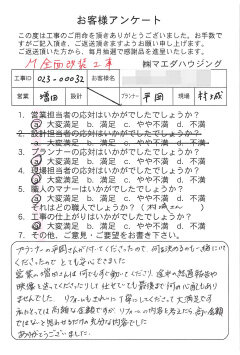 お客様アンケート
この度は工事のご用命を頂きありがとうございました。お手数で
すがご記入頂き、ご返送頂きますようお願い申し上げます。
ご返送頂いた方から、毎月抽選で感謝品を進呈いたします。
M 全面改装工事 ㈱マエダハウジング
工事ID 023-00032 お客様名
営業 増田 設計 プランナー 平岡 現場 村城
1. 営業担当者の応対はいかがでしたでしょうか？
a 大変満足 b. 満足 c. やや不満 d. 不満
2. 設計担当者の応対はいかがでしたでしょうか？
a. 大変満足 b. 満足 c. やや不満 d. 不満
3. プランナーの応対はいかがでしたでしょうか？
a 大変満足 b. 満足 c. やや不満 d. 不満
4. 現場担当者の応対はいかがでしたでしょうか？
a 大変満足 b. 満足 c. やや不満 d. 不満
5. 職人のマナーはいかがでしたでしょうか？
a 大変満足 b. 満足 c. やや不満 d. 不満
それはどの職人でしょうか？（ さん）
6. 工事の仕上がりはいかがでしたでしょうか？
a 大変満足 b. 満足 c. やや不満 d. 不満
7. その他、ご意見・ご要望をお書き下さい。
プランナーの平岡さんが付いてくださったので、何を決めるのも一緒に
くださったので とても安心できました。
営業の増田さんは何でもすぐ動いてくださり、途中の経過報告や
映像も送ってくださったりし 仕せていても最後まで何の心配もあり
ませんでした。 リフォームもきれいに丁寧にしてくださって 大満足です
私にとっては 高額な金額ですが、リフォームの内容を考えたら、高い金額
ではないと思わせるだけの充分な内容でした
ありがとうございました。